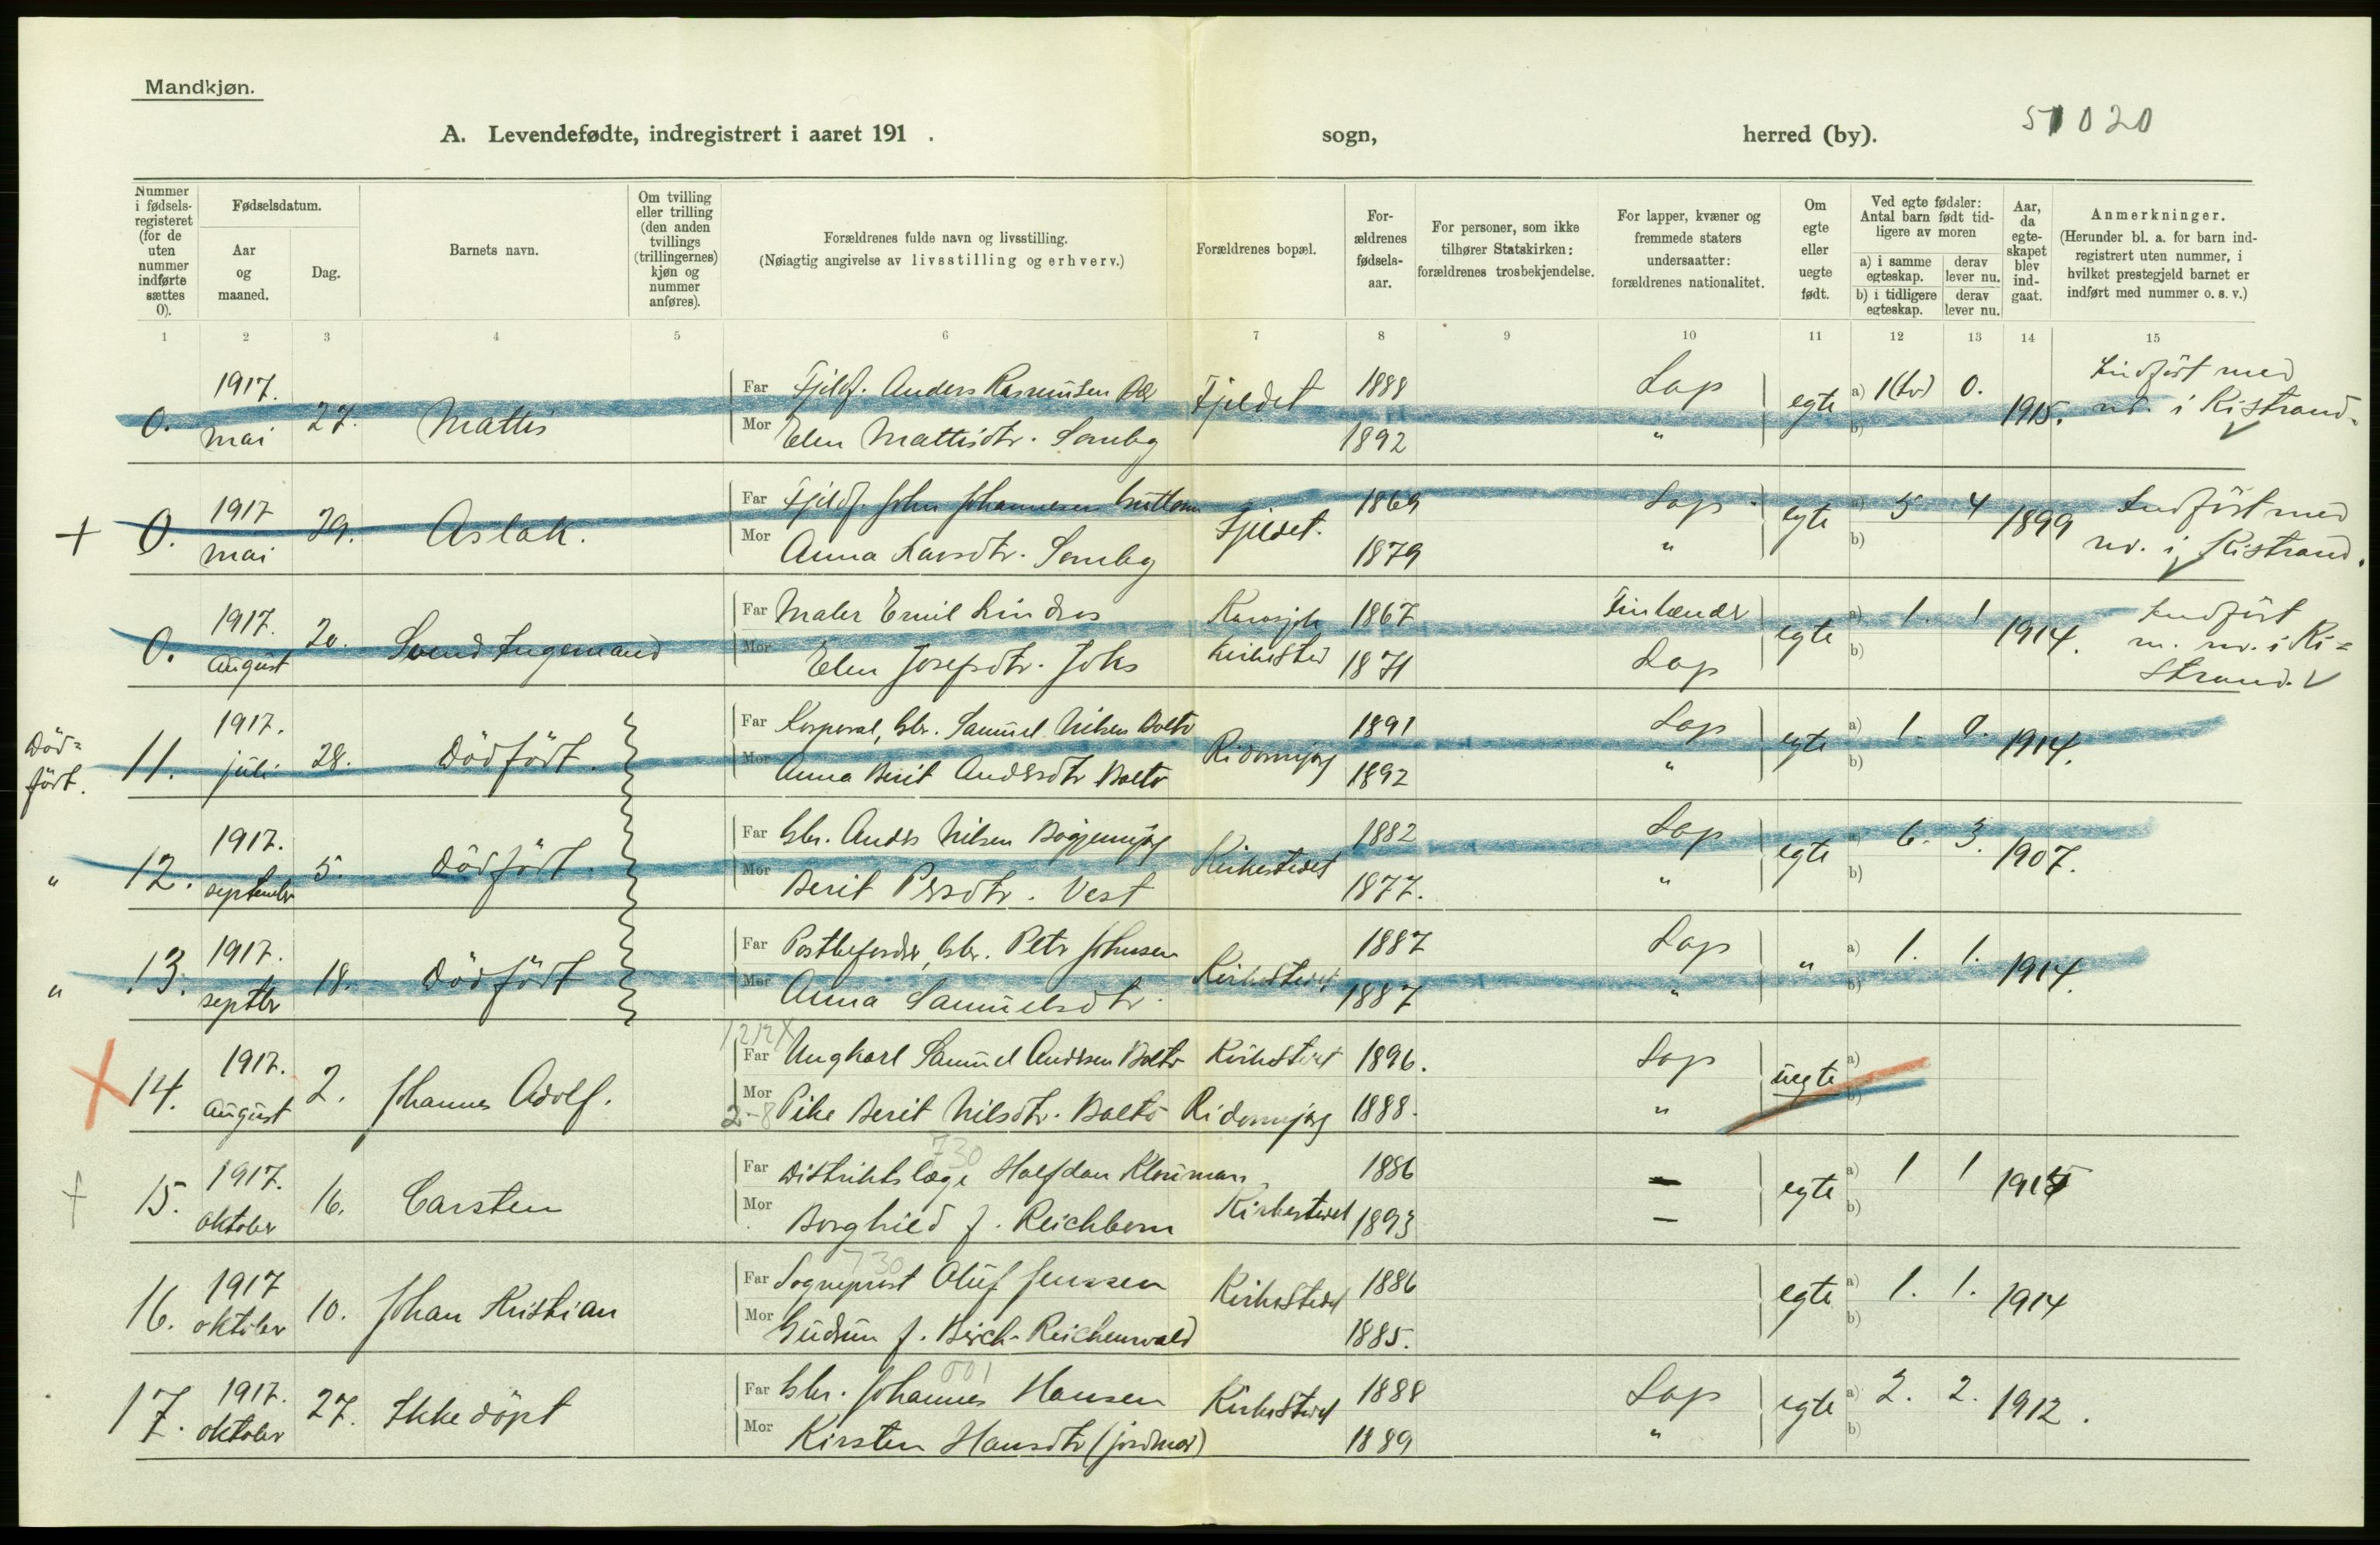 Mandkjøn.
51020
A. Levendefødte, indregistrert i aaret 191 . sogn, herred (by).
Nummer i fødsels-registeret (for de uten nummer indførte sættes 0).
Fødselsdatum.
Aar og maaned.
Dag.
Barnets navn.
Om tvilling eller trilling (den anden tvillings (trillingernes) kjøn og nummer anføres).
Forældrenes fulde navn og livsstilling.
(Nøiagtig angivelse av livsstilling og erhverv.)
Forældrenes bopæl.
For-ældrenes fødsels-aar.
For personer, som ikke tilhører Statskirken: forældrenes trosbekjendelse.
For lapper, kvæner og fremmede staters undersaatter: forældrenes nationalitet.
Om egte eller uegte født.
Ved egte fødsler: Antal barn født tid-ligere av moren
a) i samme egteskap. derav lever nu.
b) i tidligere egteskap. derav lever nu.
Aar, da egte-skapet blev ind-gaat.
Anmerkninger.
(Herunder bl. a. for barn ind-registrert uten nummer, i hvilket prestegjeld barnet er indført med nummer o. s. v.)
1 2 3 4 5 6 7 8 9 10 11 12 13 14 15
0. 1917. mai 27. Mattis
Far Fjeldf. Anders Rasmussen Fjeldet 1888 Lap egte a) 1(tv) 0. 1915. Indført med nr. i Kistrand.
Mor Elen Mattisdtr. Somby 1892 " b)
+ 0. 1917 mai 29. Aslak.
Far Fjeldf. John Johannesen Guttorm Fjeldet. 1869 Lap egte a) 5 4 1899 Indført med nr. i Kistrand.
Mor Anna Larsdtr. Somby 1879 " b)
0. 1917. August 20. Svend Ingemand
Far Maler Emil Lindros Karasjok Kirkested 1867 Finlænder egte a) 1. 1 1914. Indført m. nr. i Ki=strand.
Mor Elen Josefsdtr. Joks 1871 Lap b)
Død=ført. 11. 1917. juli 28. Dødført.
Far Korporal, Gbr. Samuel Nilsen Balto Ridonnjarg 1891 Lap egte a) 1. 0. 1914.
Mor Anna Berit Andersdtr Balto 1892 " b)
" 12. 1917. september 5. Dødført.
Far Gbr. Anders Nilsen Kirkestedet 1882 Lap egte a) 6. 3. 1907.
Mor Berit Persdtr. Vest 1877. " b)
" 13. 1917. septbr 18. Dødført
Far Postbefordrer, Gbr. Peter Johnsen Kirkestedet 1887 Lap " a) 1. 1. 1914.
Mor Anna Samuelsdtr. 1887 " b)
X 14. 1917. August 2. Johannes Adolf.
Far Ungkarl Samuel Andersen Balto Kirkestedet 1896. Lap uegte a)
Mor 2-8 Pike Berit Nilsdtr. Balto Ridonnjarg 1888. " b)
+ 15. 1917. Oktober 16. Carsten
730
Far Distriktslæge Halfdan Klouman Kirkestedet 1886 – egte a) 1 1 1915
Mor Borghild f. Reichborn 1893 – b)
16. 1917 oktober 10. Johan Kristian
730
Far Sogneprest Oluf Jenssen Kirkestedet 1886 egte a) 1. 1. 1914
Mor Gudrun f. Birch-Reichenwald 1885. b)
17. 1917. oktober 27. Ikke döpt
001
Far Gbr. Johannes Hansen Kirkestedet 1888 Lap egte a) 2. 2. 1912.
Mor Kirsten Hansdtr (jordmor) 1889 " b)